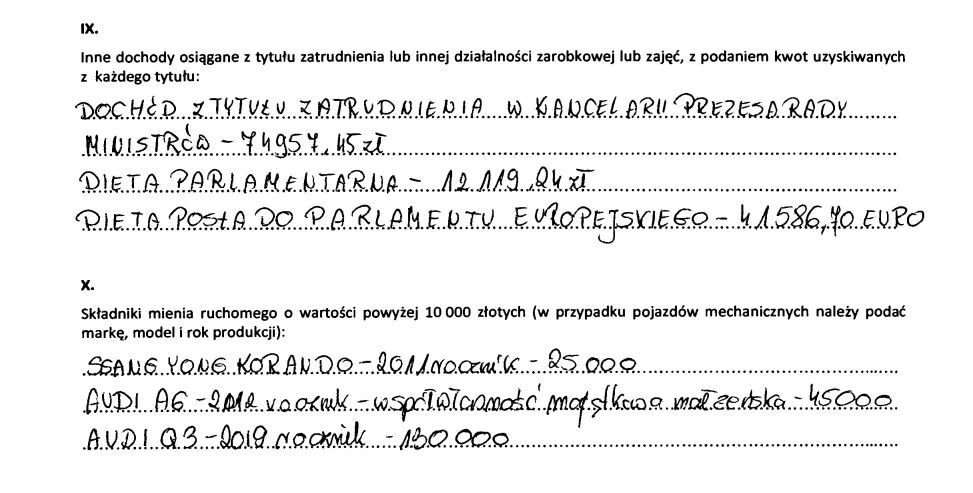 IX.
Inne dochody osiągane z tytułu zatrudnienia lub innej działalności zarobkowej lub zajęć, z podaniem kwot uzyskiwanych
z każdego tytułu:
DOCHÓD Z TYTUŁU ZATRUDNIENIA W KANCELARII PREZESA RADY
MINISTRÓW - 74957,45 zł
DIETA PARLAMENTARNA - 12 119,24 zł
DIETA POSŁA DO PARLAMENTU EUROPEJSKIEGO - 41586,70 EURO
X.
Składniki mienia ruchomego o wartości powyżej 10 000 złotych (w przypadku pojazdów mechanicznych należy podać
markę, model i rok produkcji):
SSANG YONG KORANDO - 2011 rocznik - 25 000
AUDI A6 - 2012 rocznik - współwłasność majątkowa małżeńska - 45000
AUDI Q3 - 2019 rocznik - 130 000